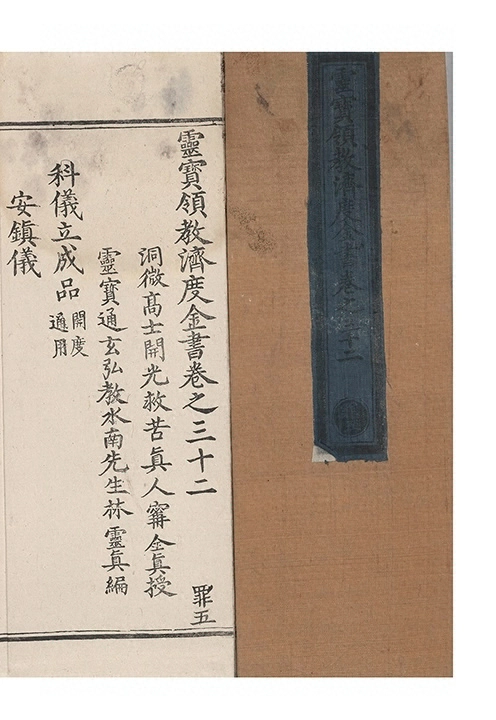 靈寶領教濟度金書卷之三十二
靈寶領教濟度金書卷之三十二
罪五
洞微高士開光救苦眞人寗全眞授
靈寶通玄弘教水南先生林靈眞編
科儀立成品 開度通用
安鎭儀